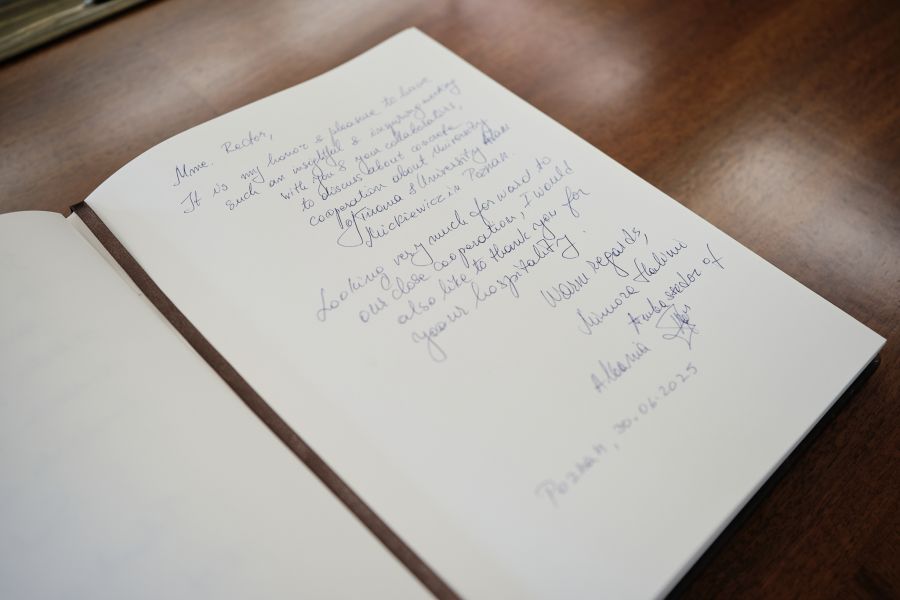 Mme. Rector,
It is my honor & pleasure to have
such an insightful & inspiring meeting
with you & your collaborators,
to discuss about concrete
cooperation about University
of Tirana & University Adam
Mickiewicz in Poznan.
Looking very much forward to
our close cooperation, I would
also like to thank you for
your hospitality.
Warm regards,
Ambassador of
Albania
Poznan, 30.06.2025